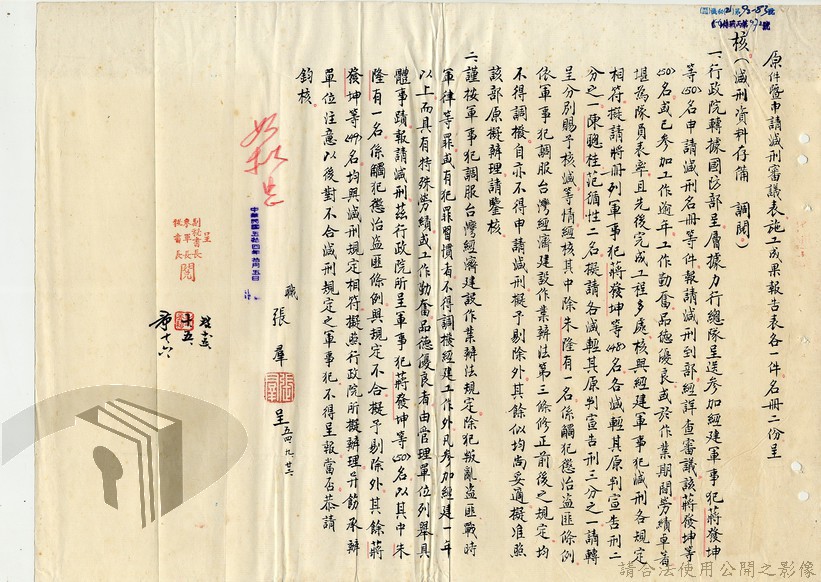 原件暨申請減刑審議表施工成果報告表各一件名冊二份呈
核（減刑資料存備　調閱）
一、行政院轉據國防部呈層據力行總隊呈送參加經建軍事犯蔣發坤
等(50)名申請減刑名冊等件報請減刑到部經詳查審議該蔣發坤等
(50)名或已參加工作逾年工作勤奮品德優良或於作業期間勞績卓著
堪為隊員表率且先後完成工程多處核與經建軍事犯減刑各規定
相符擬請將冊列軍事犯蔣發坤等(48)名各減輕其原判宣告刑二
分之一陳聰柱范炳性二名擬請各減輕其原判宣告刑三分之一請轉
呈分別賜予核減等情經核其中除朱隆有一名係觸犯懲治盜匪條例
依軍事犯調服台灣經濟建設作業辦法第三條修正前後之規定均
不得調撥自亦不得申請減刑擬予剔除外其餘似均尚妥適擬准照
該部原擬辦理請鑒核
二、謹按軍事犯調服台灣經濟建設作業辦法規定除犯叛亂盜匪戰時
軍律等罪或有犯罪習慣者不得調撥經建工作外凡參加經建一年
以上而具有特殊勞績或工作勤奮品德優良者由管理單位列舉具
體事蹟報請減刑茲行政院所呈軍事犯蔣發坤等(50)名以其中朱
隆有一名係觸犯懲治盜匪條例與規定不合擬予剔除外其餘蔣
發坤等(49)名均與減刑規定相符擬照行政院所擬辦理並飭承辦
單位注意以後對不合減刑規定之軍事犯不得呈報當否恭請
鈞核
職　張羣　呈　五四、九、廿三
張羣
如擬
中華民國五拾四年拾月五日
呈
副秘書長
參軍長
秘書長
閱
十五
十六
請合法使用公開之影像